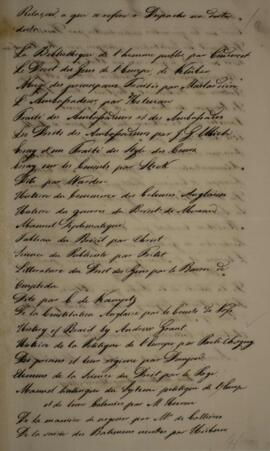 Relação a que se refere o Despacho na data
La Bibliotheque de l'homme public par Condorcet
Le Droit des Gens de l'Europe de Kluber
des principaux Traités par
L'Ambassadeur par
Traité des Ambassades et des Ambassadeurs
Les Droits des Ambassadeurs par J. G. Ulrich
Essay d'un Traité du Style des Cours
Essay sur les Consuls par Steck
Dito par Warden
Histoire du Commerce des Colonies Anglaises
Histoire des guerres du Brésil de
Manuel Diplomatique
Tableau du Brézil par
Science du Publiciste par Fritot
Litterature du Droit des Gens par le Baron de
Ompteda
Dito par C. de Kamptz
De la Constitution Anglaise par le Comte de
History of Brazil by Andrew Grant
Histoire de la Politique de l'Europe par
Des prisons et leur régime par
de la Science du Droit par le Page
Manuel historique du Système politique de l'Europe
et de leurs Colonies par M. Heeren
De la manière de negocier par Mr. de Callières
De la saisie des Batimens neutres par Hubner